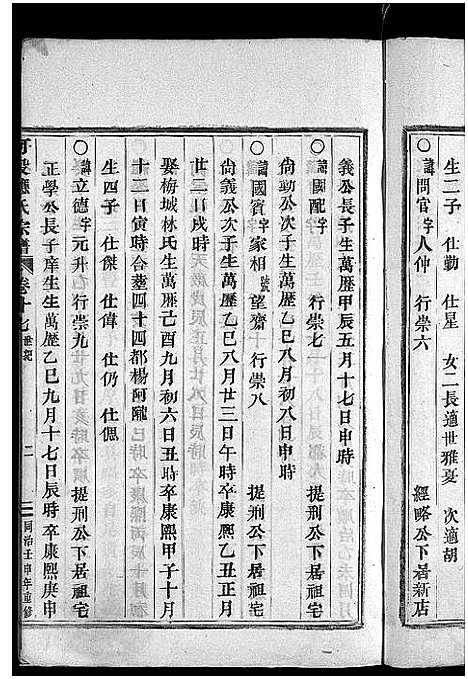 生二子　仕勤　仕星　女二長適世雅夏　次適胡
○諱問官字人仲　行崇六　經略公下居新店
義公長子生萬歷甲辰五月十七日申時
○諱國配字　行崇七　提刑公下居祖宅
尙勤公次子生萬歷乙巳八月初八日申時
○諱國賓字家相號望齋　行崇八　提刑公下居祖宅
尙義公次子生萬歷乙巳八月廿三日午時卒康熙乙丑正月
廿二日戌時
娶梅城林氏生萬歷己酉九月初六日丑時卒康熙甲子十月
十三日寅時合葬四十四都楊阿隴
生四子　仕傑　仕偉　仕仍　仕偲
○諱立德字元升　行崇九　提刑公下居祖宅
正學公長子庠生生萬歷乙巳九月十七日辰時卒康熙庚申
氏宗譜　卷十七　世紀　二　同治壬申年重修